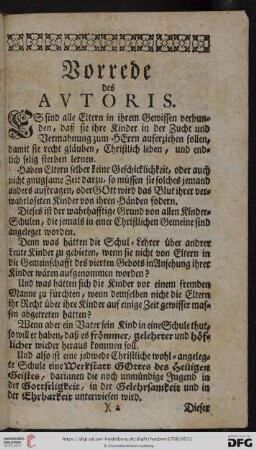 Vorrede
des
AVTORIS.
ES sind alle Eltern in ihrem Gewissen verbun-
den, daß sie ihre Kinder in der Zucht und
Vermahnung zum HErrn auferziehen sollen,
damit sie recht gläuben, Christlich leben, und end-
lich selig sterben lernen.
Haben Eltern selber keine Geschicklichkeit, oder auch
nicht gnugsame Zeit darzu, so müssen sie solches jemand
anders auftragen, oder GOtt wird das Blut ihrer ver-
wahrloseten Kinder von ihren Händen fodern.
Dieses ist der wahrhafftige Grund von allen Kinder-
Schulen, die jemals in einer Christlichen Gemeine sind
angeleget worden.
Denn was hätten die Schul-Lehrer über andrer
Leute Kinder zu gebieten, wenn sie nicht von Eltern in
die Gemeinschaft des vierten Gebots in Ansehung ihrer
Kinder wären aufgenommen worden?
Und was hätten sich die Kinder vor einem fremden
Manne zu fürchten, wenn demselben nicht die Eltern
ihr Recht über ihre Kinder auf einige Zeit gewisser mas-
sen abgetreten hätten?
Wenn aber ein Vater sein Kind in eine Schule thut,
so will er haben, daß es frömmer, gelehrter und höf-
licher wieder heraus kommen soll.
Und also ist eine jedwede Christliche wohl-angeleg-
te Schule eine Werkstatt GOttes des Heiligen
Geistes, darinnen die noch unmündige Jugend in
der Gottseligkeit, in der Gelehrsamkeit und in
der Ehrbarkeit unterwiesen wird.
)( 2 Dieser
https://digi.ub.uni-heidelberg.de/diglit/huebner1768/0011
© Universitätsbibliothek Heidelberg
Gefördert durch die
DFG